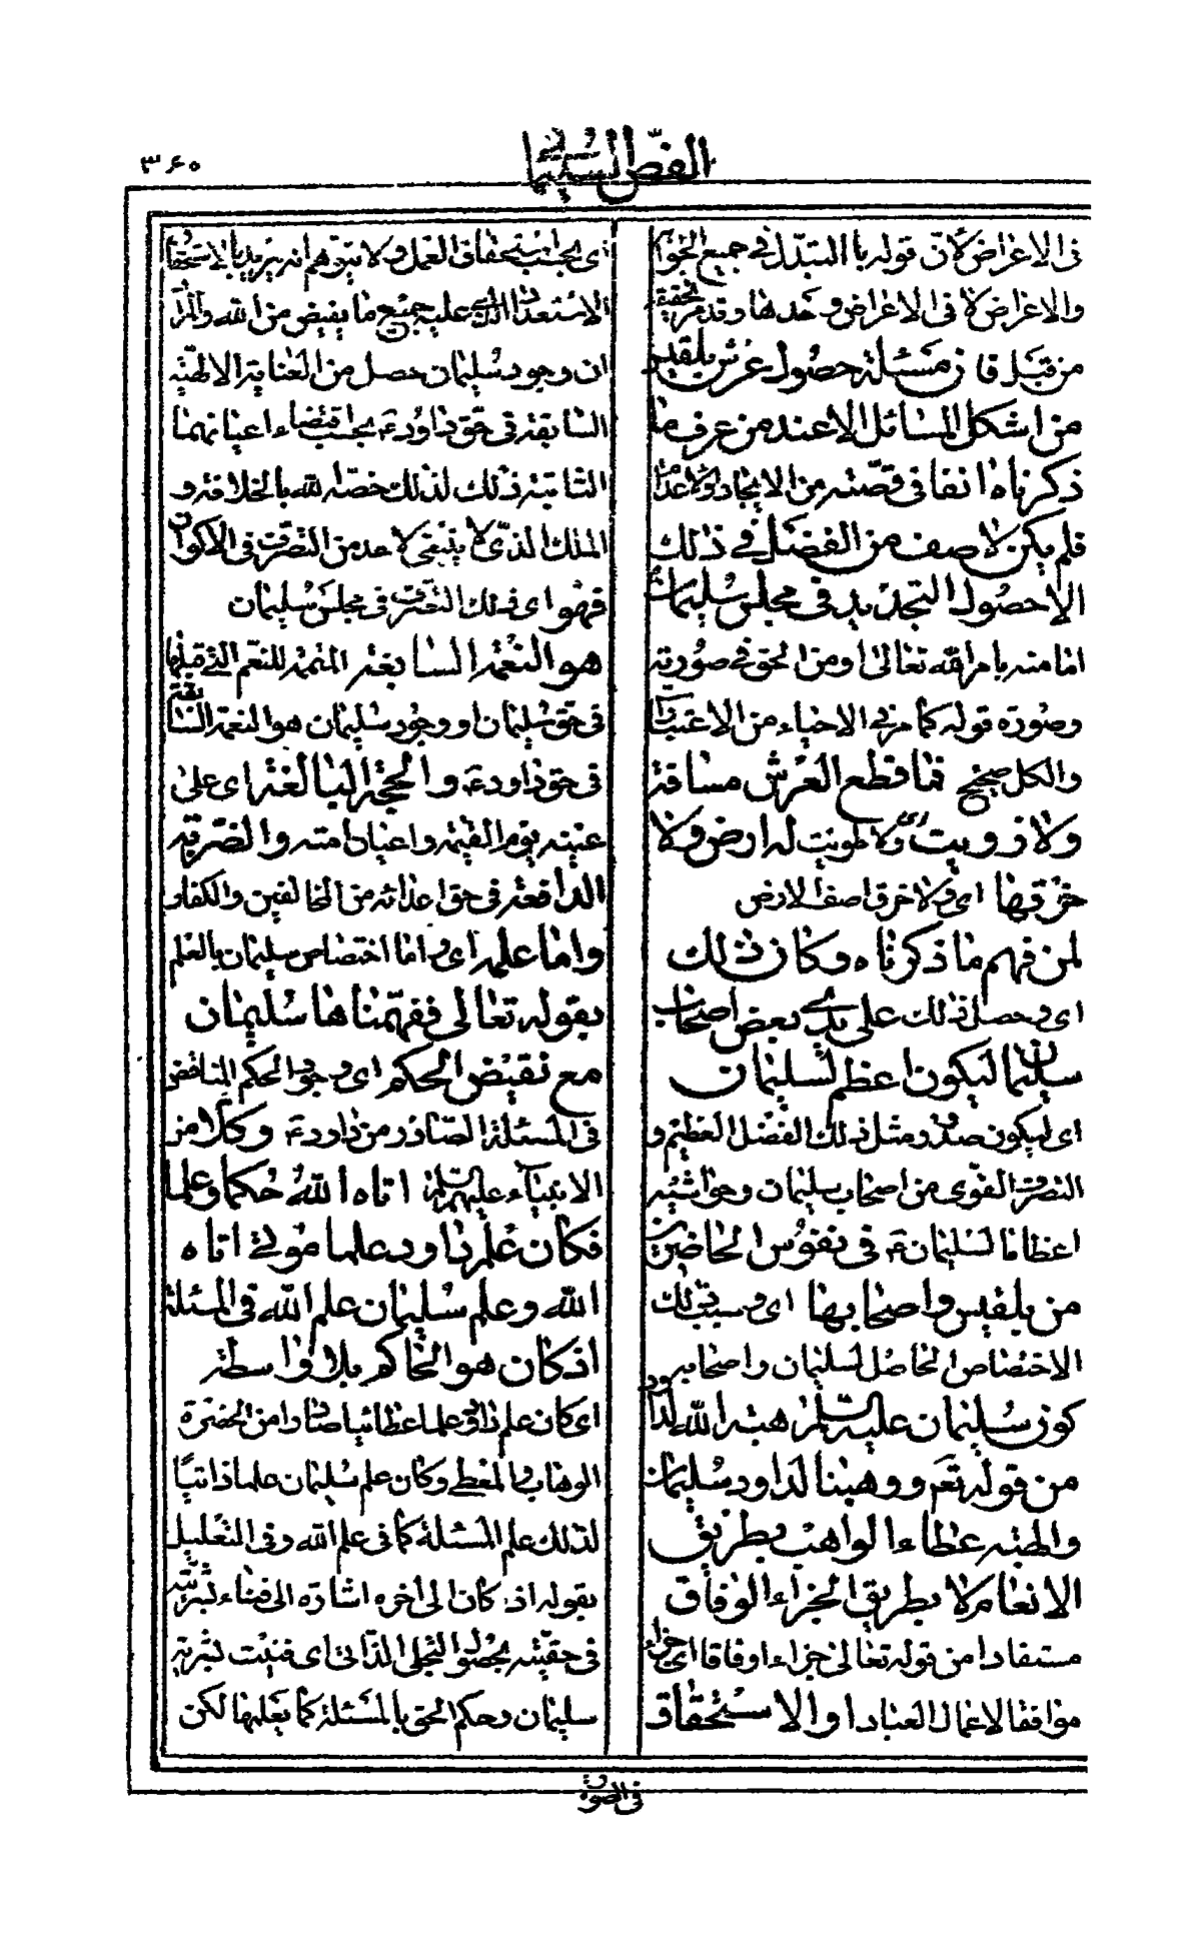 الفصّ السليماني
٣۶٥
فى الاعراض لانّ قوله بالتبدّل فى جميع الجواهر
والاعراض لا فى الاعراض وحدها وقد مر تحقيقه
من قبل فان مسئلة حصول عرش بلقيس
من اشكل المسائل الا عند من عرف ما
ذكرناه انفا فى قصّته من الايجاد والاعدام
فلم يكن لاصف من الفضل فى ذلك
الا حصول التجديد فى مجلس سليمان
اما منه بامر الله تعالى او من الحق فى صورته
وصورة قوله كما مر فى الاحياء من الاعتبارات
والكل صحيح فما قطع العرش مسافة
ولا زويت اى ولا طويت له ارض ولا
خرقها اى ولا خرق اصف الارض
لمن فهم ما ذكرناه وكان ذلك
اى وحصل ذلك على يدى بعض اصحاب
سليمان ليكون اعظم لسليمان
اى ليكون صدور مثل ذلك الفضل العظيم و
التصرف القوى من اصحاب سليمان وحواشيه
اعظاما لسليمان ع فى نفوس الحاضرين
من بلقيس واصحابها اى وسبب ذلك
الاختصاص الحاصل لسليمان واصحابه
كون سليمان عليه السلام هبة الله لداود
من قوله تعم ووهبنا لداود سليمان
والهبه عطاء الواهب بطريق
الانعام لا بطريق الجزاء الوفاق
مستفادا من قوله تعالى جزاء وفاقا اى جزاء
موافقا لاعمال العباد او الاستحقاق
اى بحسب استحقاق العمل ولا يتوهم انه يريد بالاستحقاق
الاستعداد الذى عليه جميع ما يفيض من الله والمراد
ان وجود سليمان حصل من العناية الالهيّة
السابقة فى حق داود ع بحسب اقتضاء اعيانهما
الثابتة ذلك لذلك خصّه الله بالخلافة و
الملك الذى لا ينبغى لاحد من التصرف فى الاكوان
فهو اى ذلك التصرف فى مجلس سليمان
هو النعمة السابغة المتممة للنعم التى قبلها
فى حق سليمان او وجود سليمان هو النعمة السابقة
فى حق داود ع والحجة البالغة اى على
عينه يوم القيمة واعيان امته والضربة
الدامغة فى حق اعدائه من المخالفين والكفار
واما علمه اى واما اختصاص سليمان بالعلم
بقوله تعالى ففهّمناها سليمان
مع نقيض الحكم اى وجود الحكم المناقض
فى المسئلة الصادر من داود ع وكلّا من
الانبياء عليهم السلام اتاه الله حكما وعلما
فكان علم داود علما مؤتى اتاه
الله وعلم سليمان علم الله فى المسئلة
اذ كان هو الحاكم بلا واسطة
اى كان علم داود علما اعطائيا صادرا من الحضرة
الوهاب والمعطى وكان علم سليمان علما ذاتيّا
لذلك علم المسئلة كما فى علم الله وفى التعليل
بقوله اذ كان الى اخره اشارة الى فناء بشريته
فى حقيّته بحصول التجلى الذاتى اى فنيت بشرية
سليمان وحكم الحق بالمسئلة كما يعلمها لكن
فى الصورة